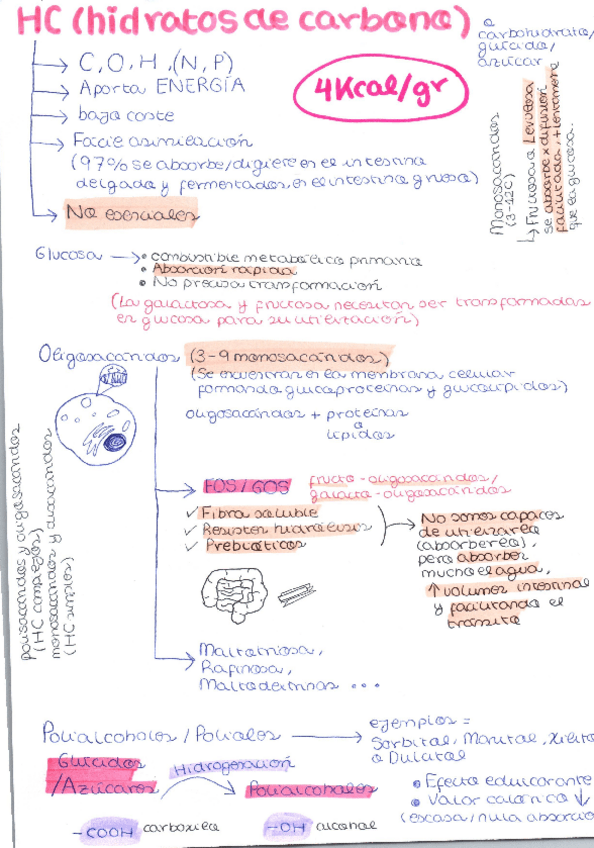 HC (hidratos de carbono)
o carbohidrato/
glúcido/
azúcar
C, O, H, (N, P)
Aporta ENERGÍA
4Kcal/gr
bajo coste
Fácil asimilación
(97% se absorbe/digiere en el intestino
delgado y fermentados, en el intestino grueso)
No esenciales
Monosacáridos
(3-12C)
Fructosa o Levulosa
se absorbe x difusión
facilitada, + lentamente
que la glucosa.
Glucosa
• combustible metabólico primario
• Absorción rápida
• No precisa transformación
(La galactosa y fructosa necesitan ser transformadas
en glucosa para su utilización)
Oligosacáridos (3-9 monosacáridos)
(Se encuentran en la membrana celular
formando glucoproteínas y glucolípidos)
oligosacáridos + proteínas
o
lípidos
polisacáridos y oligosacáridos
(HC complejos)
monosacáridos y disacáridos
(HC simples)
FOS/GOS
fructo-oligosacáridos/
galacto-oligosacáridos
✓ Fibra soluble
✓ Resisten hidrólisis
✓ Prebióticos
No somos capaces
de utilizarlo
(absorberlo),
pero absorben
mucho el agua,
↑ volumen intestinal
y facilitando el
tránsito
Maltotriosa,
Rafinosa,
Maltodextrinas ...
Polialcoholes/Polioles
ejemplos =
Sorbitol, Manitol, Xilito
o Dulcitol
Glúcidos
/Azúcares
Hidrogenación
Polialcoholes
• Efecto edulcorante
• Valor calórico ↓
(escasa/nula absorció
-COOH carboxilo
-OH alcohol